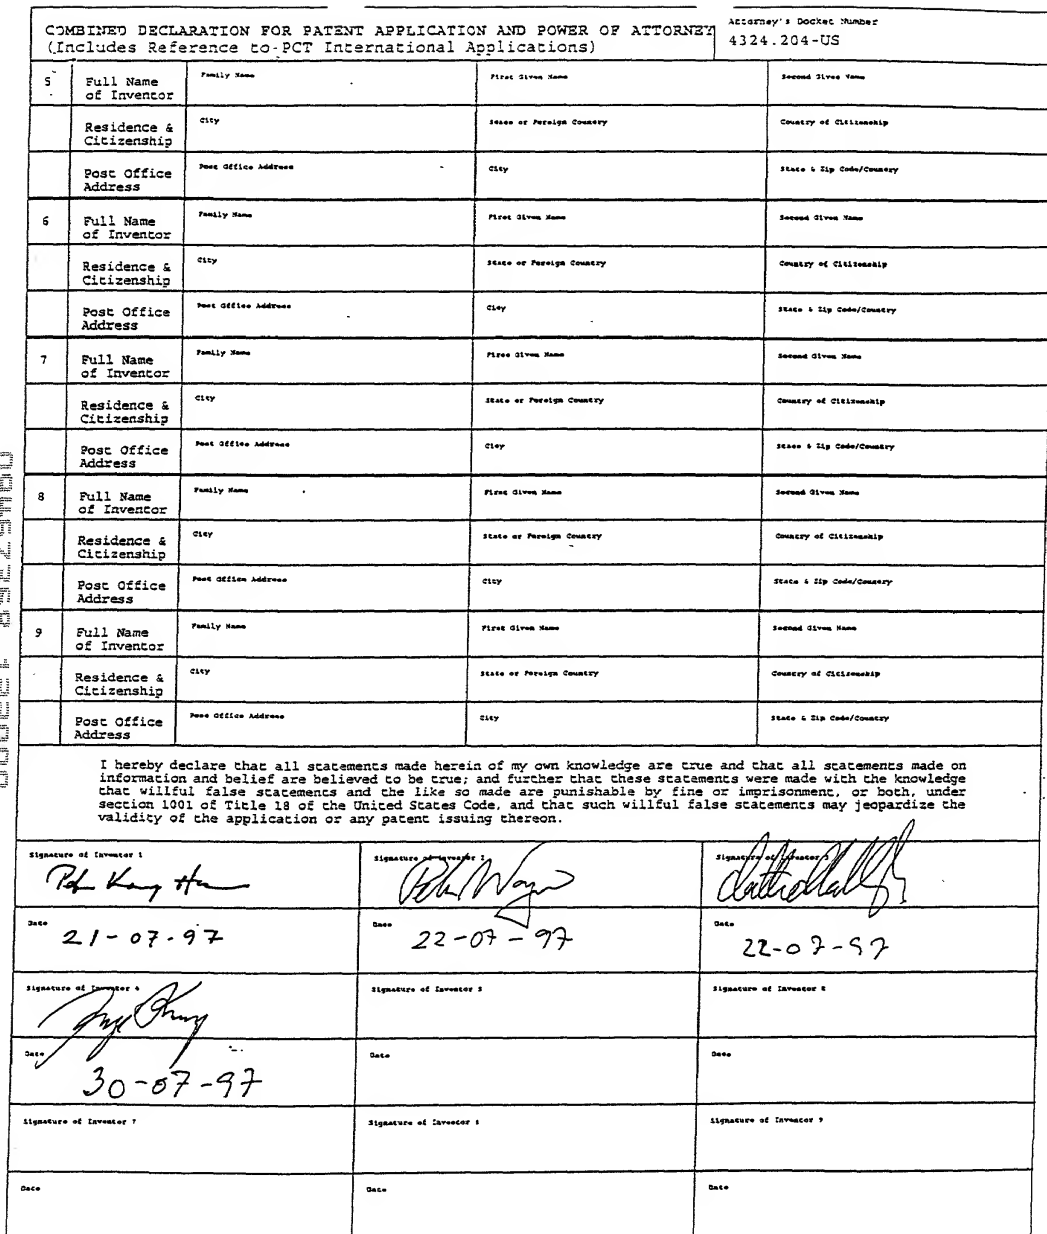 COMBINED DECLARATION FOR PATENT APPLICATION AND POWER OF ATTORNEY
(Includes Reference to PCT International Applications)
Attorney's Docket Number
4324.204-US
5 Full Name of Inventor Family Name First Given Name Second Given Name
Residence & Citizenship City State or Foreign Country Country of Citizenship
Post Office Address Post Office Address City State & Zip Code/Country
6 Full Name of Inventor Family Name First Given Name Second Given Name
Residence & Citizenship City State or Foreign Country Country of Citizenship
Post Office Address Post Office Address City State & Zip Code/Country
7 Full Name of Inventor Family Name First Given Name Second Given Name
Residence & Citizenship City State or Foreign Country Country of Citizenship
Post Office Address Post Office Address City State & Zip Code/Country
8 Full Name of Inventor Family Name First Given Name Second Given Name
Residence & Citizenship City State or Foreign Country Country of Citizenship
Post Office Address Post Office Address City State & Zip Code/Country
9 Full Name of Inventor Family Name First Given Name Second Given Name
Residence & Citizenship City State or Foreign Country Country of Citizenship
Post Office Address Post Office Address City State & Zip Code/Country
I hereby declare that all statements made herein of my own knowledge are true and that all statements made on
information and belief are believed to be true; and further that these statements were made with the knowledge
that willful false statements and the like so made are punishable by fine or imprisonment, or both, under
section 1001 of Title 18 of the United States Code, and that such willful false statements may jeopardize the
validity of the application or any patent issuing thereon.
Signature of Inventor 1 Signature of Inventor 2 Signature of Inventor 3
Date 21-07-97 Date 22-07-97 Date 22-07-97
Signature of Inventor 4 Signature of Inventor 5 Signature of Inventor 6
Date 30-07-97 Date Date
Signature of Inventor 7 Signature of Inventor 8 Signature of Inventor 9
Date Date Date